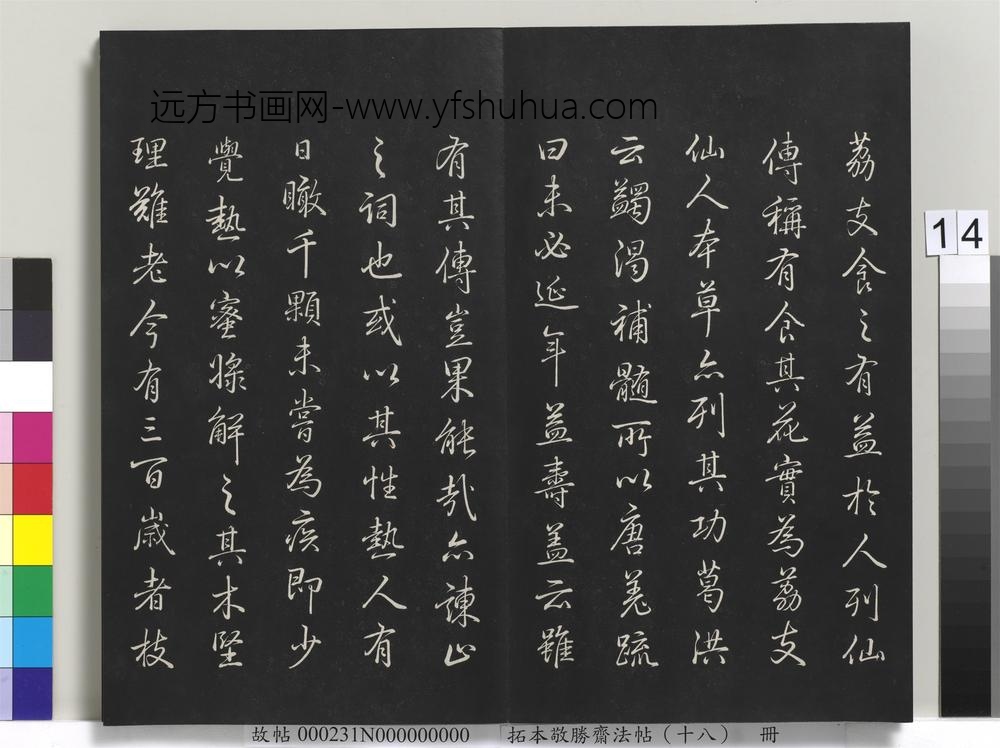 远方书画网-www.yfshuhua.com
荔支食之有益於人列仙
傳稱有食其花實為荔支
仙人本草亦列其功葛洪
云蠲渴補髓所以唐羌疏
曰未必延年益壽蓋云雖
有其傳豈果能哉亦諫止
之詞也或以其性熱人有
日瞰千顆未嘗為疾即少
覺熱以蜜漿解之其木堅
理難老今有三百歲者枝
14
故帖 000231N000000000 拓本敬勝齋法帖（十八） 冊